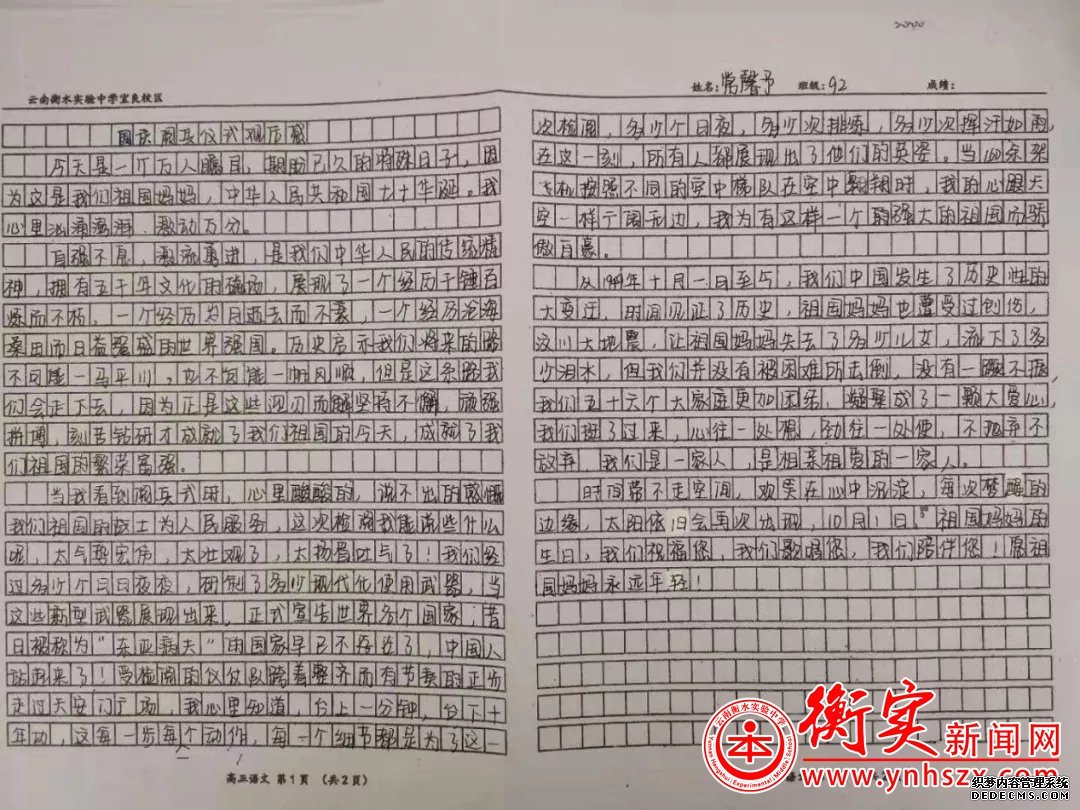 云南衡水实验中学宜良校区
国庆阅兵仪式观后感
今天是一个万人瞩目，期盼已久的特殊日子，因
为这是我们祖国妈妈，中华人民共和国七十华诞。我
心里汹涌澎湃，激动万分。
自强不息，激流勇进，是我们中华人民的传统精
神，拥有五千年文化的磁场，展现了一个经历千锤百
炼而不朽，一个经历岁月逝去而不衰，一个经历沧海
桑田而日益强盛的世界强国。历史启示我们将来的路
不可能一马平川，也不可能一帆风顺，但是这条路我
们会走下去，因为正是这些迎刃而解坚持不懈，顽强
拼搏，刻苦钻研才成就了我们祖国的今天，成就了我
们祖国的繁荣富强。
当我看到阅兵式时，心里酸酸的，说不出的感慨
我们祖国的战士为人民服务，这次检阅我能说些什么
呢，太气势宏伟，太壮观了，太扬眉吐气了！我们经
过多少个日日夜夜，研制了多少现代化使用武器，当
这些新型武器展现出来，正式宣告世界各个国家；昔
日被称为“东亚病夫”的国家早已不存在了，中国人
站起来了！受检阅的仪仗队踏着整齐而有节奏的正步
走过天安门广场，我心里知道，台上一分钟，台下十
年功，这每一步每个动作，每一个细节都是为了这一
高三语文 第1页 （共2页）
姓名：常馨予 班级：92 成绩：
次检阅，多少个日夜，多少次排练，多少次挥汗如雨，
在这一刻，所有人都展现出了他们的英姿。当160余架
飞机按照不同的空中梯队在空中翱翔时，我的心跟天
空一样广阔无边，我为有这样一个的强大的祖国而骄
傲自豪。
从1949年十月一日至今，我们中国发生了历史性的
大变迁，时间见证了历史，祖国妈妈也遭受过创伤，
汶川大地震，让祖国妈妈失去了多少儿女，流下了多
少泪水，但我们并没有被困难所击倒，没有一蹶不振，
我们五十六个大家庭更加团结，凝聚成了一颗大爱心，
我们挺了过来，心往一处想，劲往一处使，不抛弃不
放弃，我们是一家人，是相亲相爱的一家人。
时间带不走空间，欢笑在心中沉淀，每次梦醒的
边缘，太阳依旧会再次出现，10月1日，祖国妈妈的
生日，我们祝福您，我们歌唱您，我们陪伴您！愿祖
国妈妈永远年轻！
云南衡水实验中学
Yunnan Hengshui Experimental Middle School
衡实新闻网
www.ynhszx.com
织梦内容管理系统
DEDECMS.COM